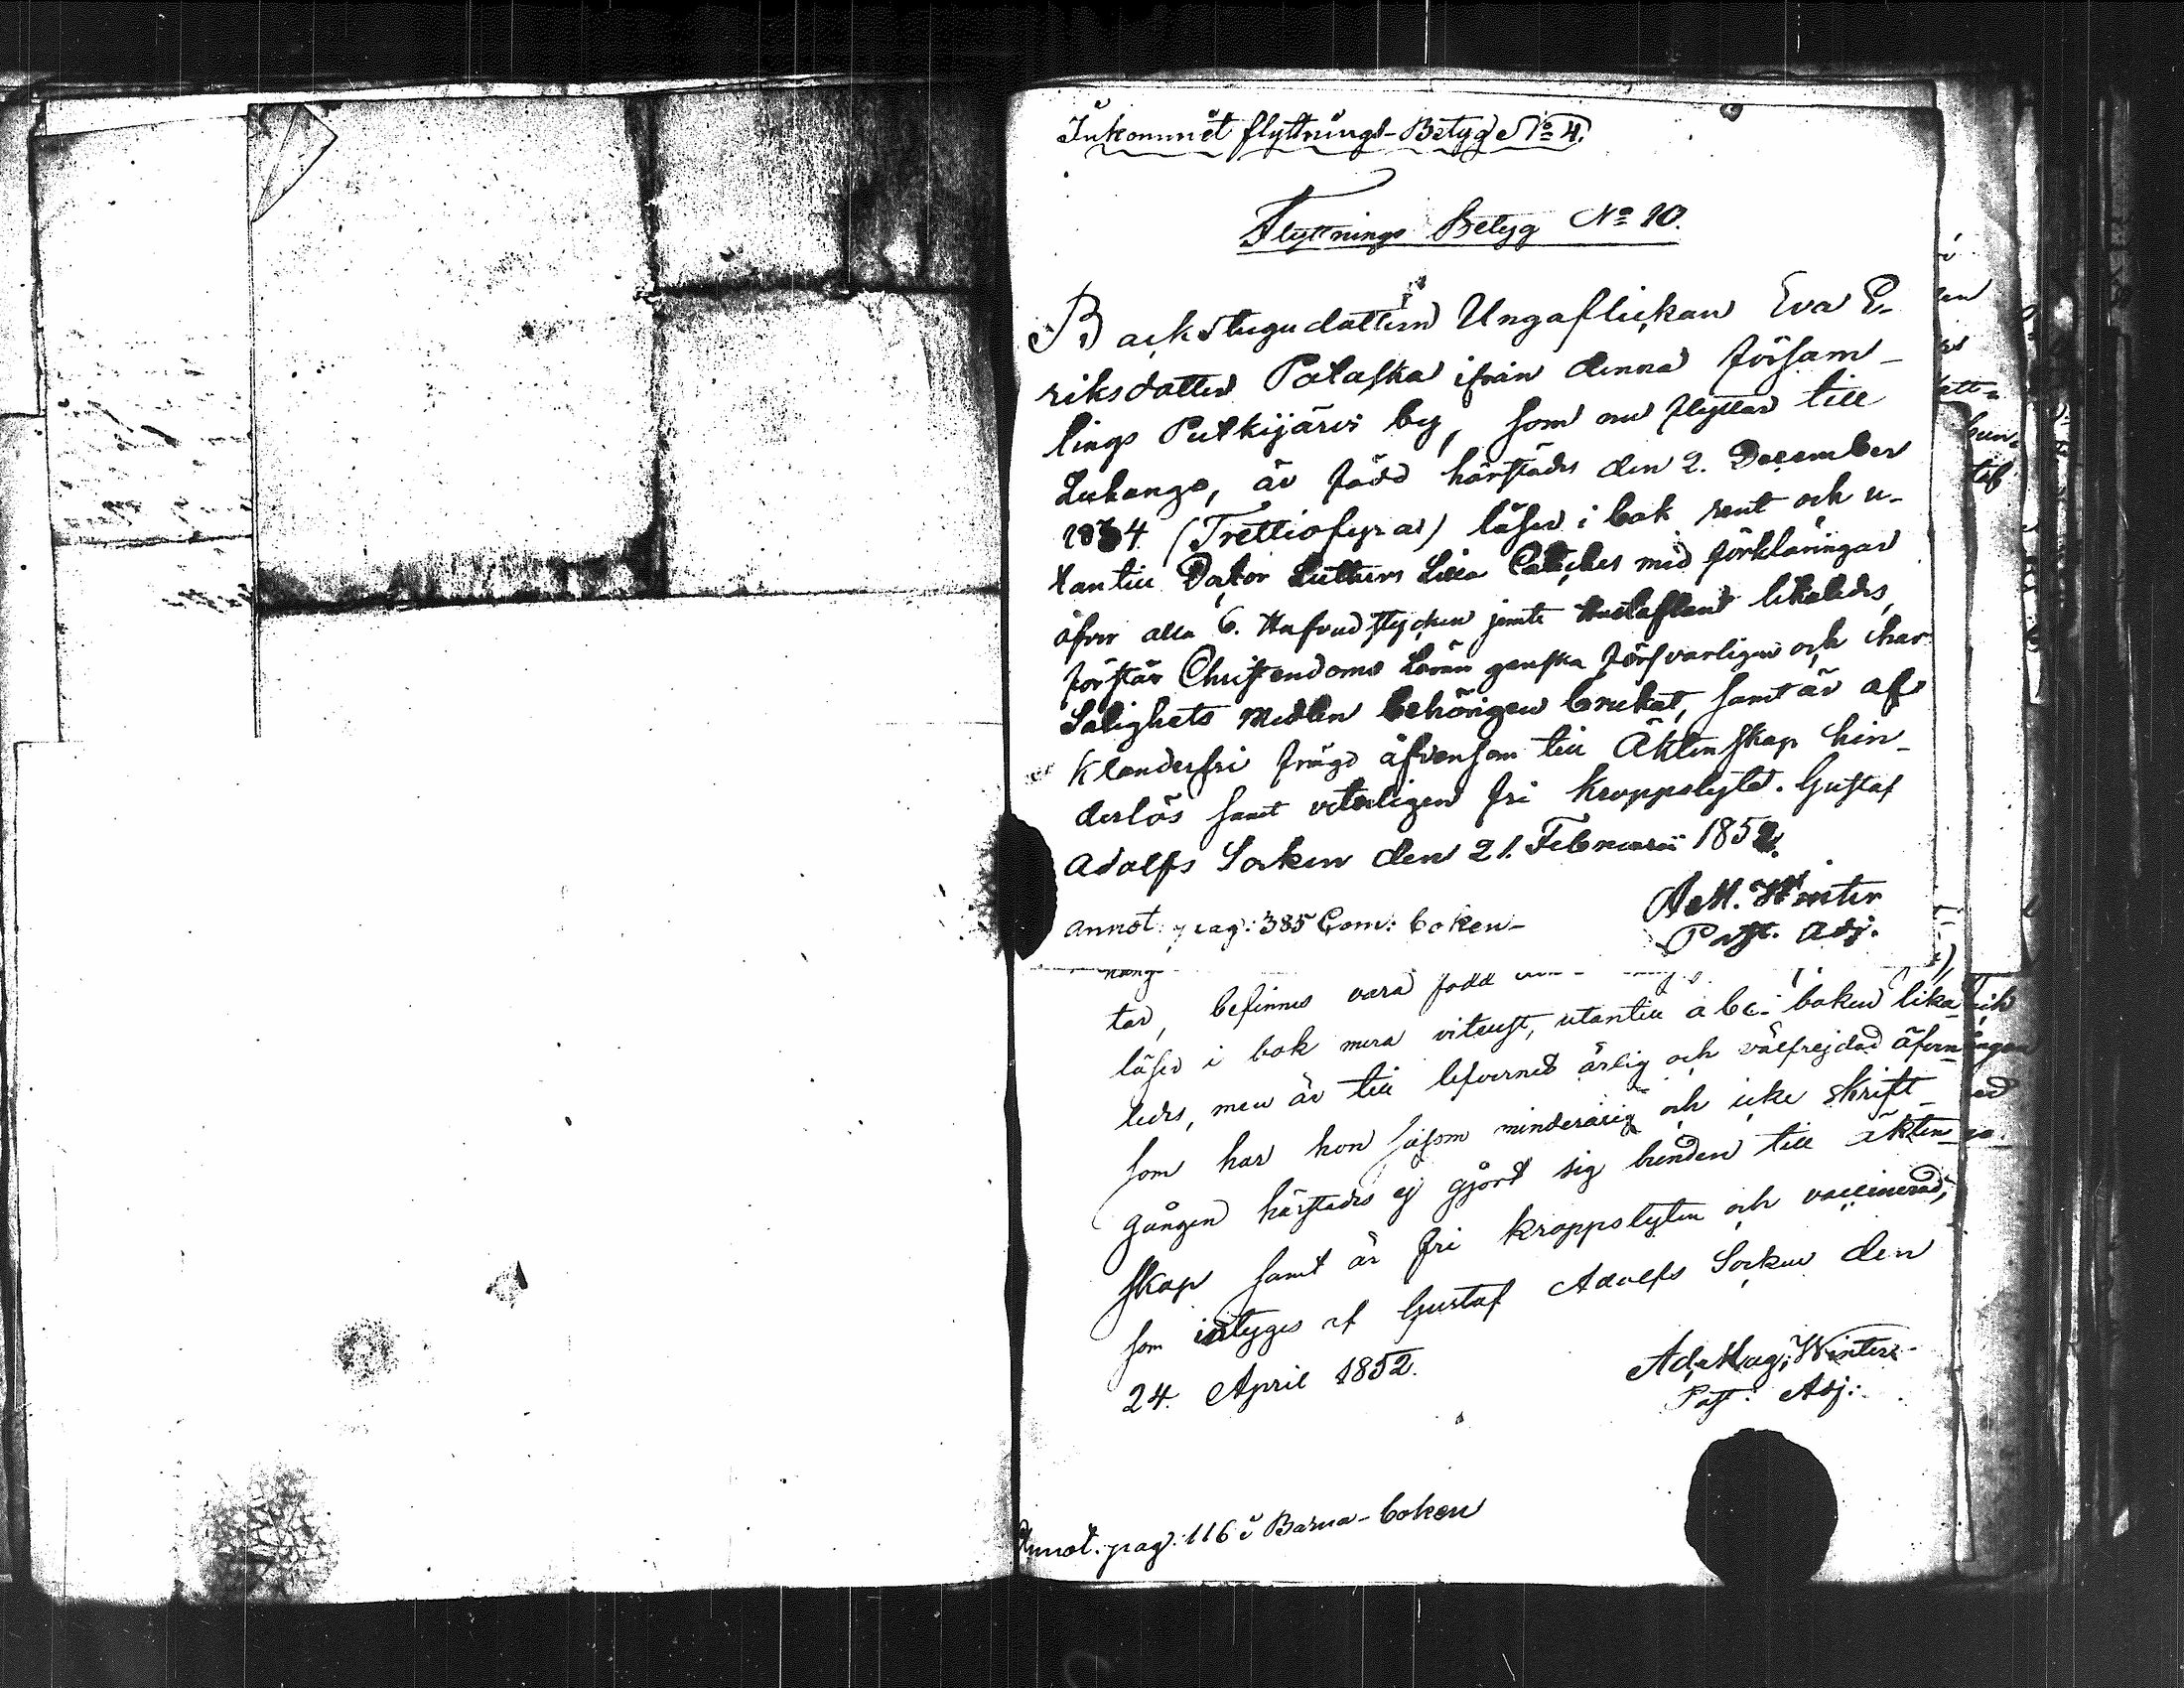 Inkommet flyttnings-Betyg No 4.
Flyttnings Betyg No 10.
Backstugudottern Ungaflickan Eva E-
riksdotter Palaska ifrån denna försam-
lings Putkijärvi by, som nu flyttar till
Luhango, är född härstädes den 2. December
1834 (Trettiofyra) läser i bok rent och u-
tantill Doktor Luthers Lilla Cateches med förklaringar
öfver alla 6. Hufvudstycken jemte Hustaflan likaledes,
förstår Christendoms Läran ganska försvarligen och har
Salighets Medlen behörigen brukat, samt är af
klanderfri frägd äfvensom till Äktenskap hin-
derlös samt veterligen fri kroppslyte. Gustaf
Adolfs Socken den 21. Februarii 1852.
A M. Winter
Past. Adj.
annot. pag: 385 Com: boken-
tar, befinnes vara född
läser i bok mera vitsust, utantill abc-boken lika-
ledes, men är till lefvernet ärlig och välfrejdad äfven-
som har hon såsom minderårig och icke skrift-
gången härstädes ej gjort sig bunden till äkten-
skap samt är fri kroppslyten och vaccinerad,
som intyges af Gustaf Adolfs Socken den
24. April 1852.
Ad. Mag: Winter
Past: Adj:
Annot. pag: 116 i Barna-boken